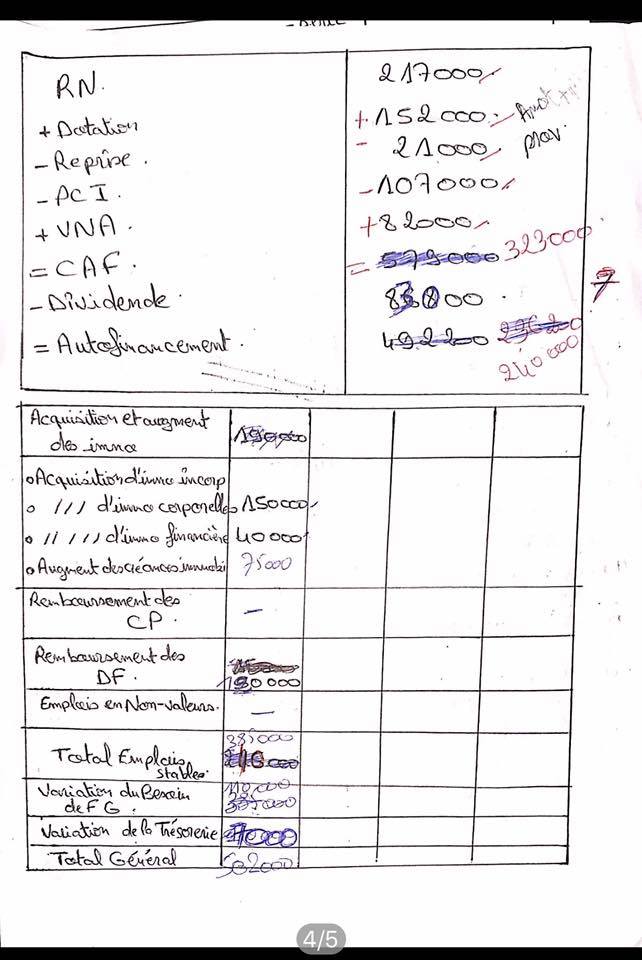 RN. 217000
+ Dotation +152000. Amot +
- Reprise. - 21000 prov.
- PCI. -107000
+ VNA. +82000
= CAF. = 579000 323000
- Dividende. 83000
= Autofinancement. 492200 236200
240000
7
Acquisition et augment 190000
des immo
• Acquisition d'immo incorp
• /// d'immo corporelles 150000
• // /// d'immo financière 40000
• Augment des créances immobi 75000
Remboursement des –
CP.
Remboursement des
DF. 130000
Emplois en Non-valeurs. –
385000
Total Emplois
stables.
Variation du Besoin
de FG.
Variation de la Trésorerie
Total Général 502000
4/5